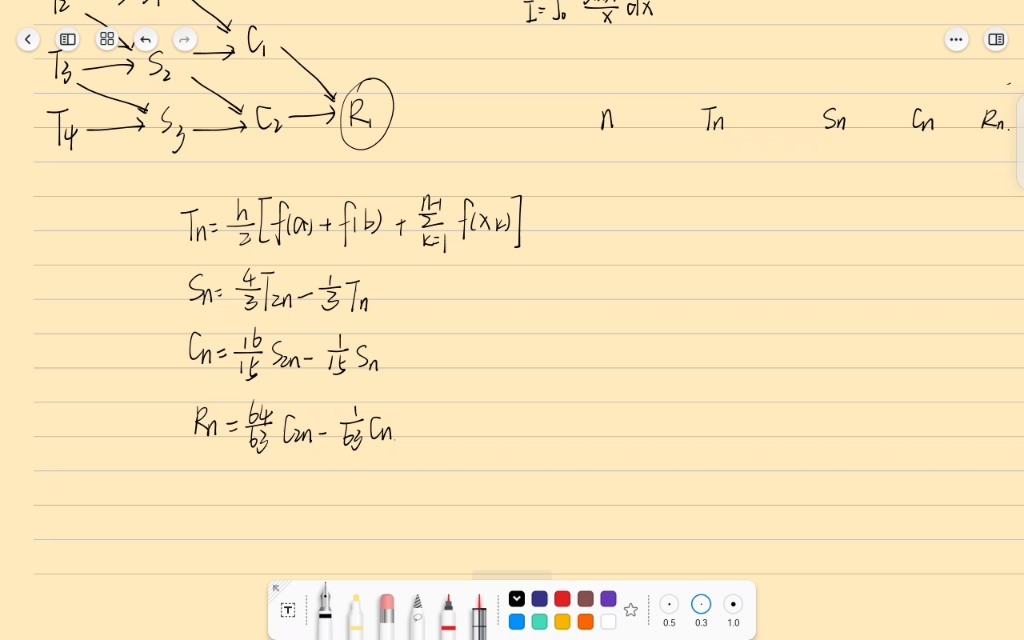 I = ∫₀ dx
T3 → S2 → C1
T4 → S3 → C2 → R1
n Tn Sn Cn Rn.
Tn = h/2 [f(a) + f(b) + Σ_{k=1}^{n-1} f(xk)]
Sn = 4/3 T2n - 1/3 Tn
Cn = 16/15 S2n - 1/15 Sn
Rn = 64/63 C2n - 1/63 Cn.
T
0.5 0.3 1.0